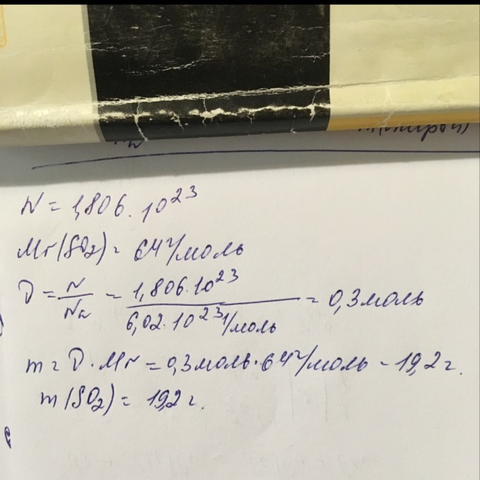 N = 1,806 · 10²³
Mr(SO₂) = 64 г/моль
ν = N/Nₐ = 1,806 · 10²³/6,02 · 10²³ 1/моль = 0,3 моль
m = ν · Mr = 0,3 моль · 64 г/моль = 19,2 г.
m(SO₂) = 19,2 г.